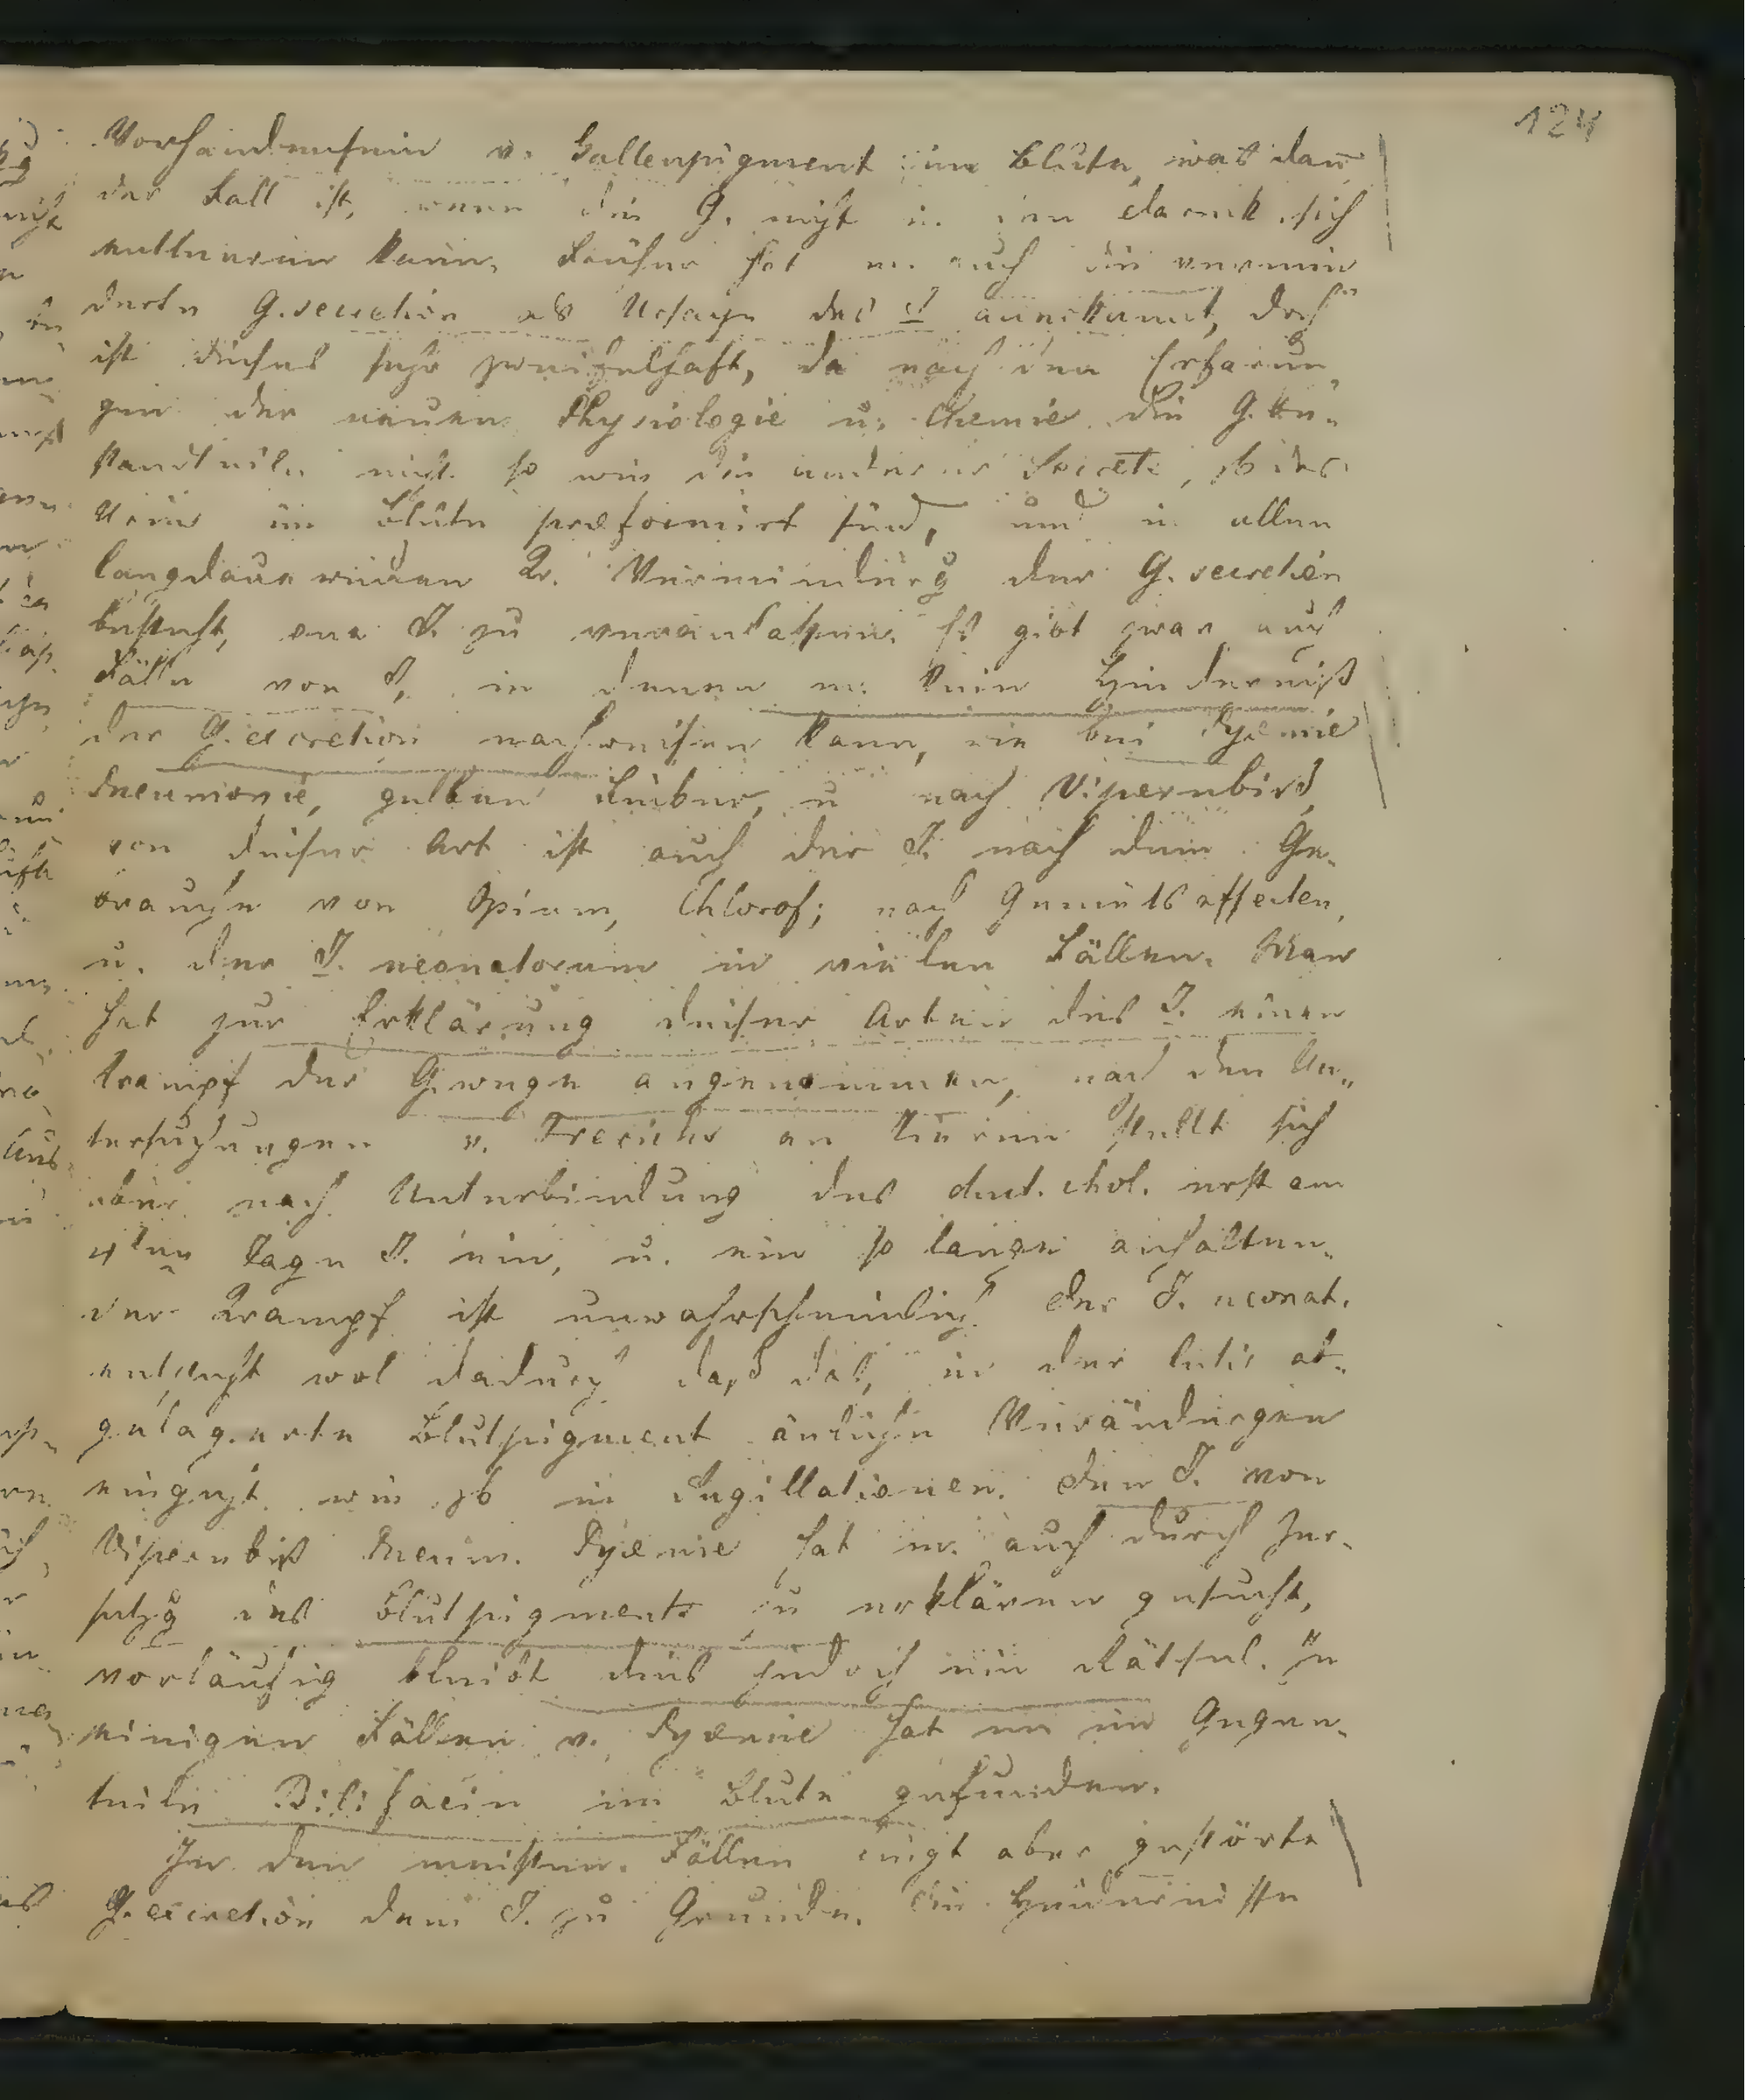 124
Vorhandensein v. Gallenpigment im Blute, was dan̄
der Fall ist, wenn die G. nicht in den Darmk. sich
entleeren kann. Früher hat m. auch die vermin
derte G.secretion als Ursache des I anerkannt, doch
ist dieses sehr zweifelhaft, da nach den Erfarun„
gen der neuen Physiologie u. Chemie die G.be„
standteile nicht so wie die anderer Secrete, zb des
Urins im Blute præformirt sind, und in allen
langdauernden Kr. Verminderūg der G.secretion
besteht, one I. zu veranlassen. Es gibt zwar auch
Fälle von I. in denen m. kein Hinderniß
der G.excretion nachweisen kann, wie bei Pyæmie
Pneumonie, gelben Fieber, u nach Vipernbiss,
von dieser Art ist auch der I. nach dem Ge„
brauche von Opium, Chlorof; nach Gemütsaffecten,
u. der I. neonatorum in vielen Fällen. Man
hat zur Erklärung dieser Arten des I. einen
Krampf der G.wege angenommen, nach den Un„
tersuchungen v. Frerichs an Tieren stellt sich
aber nach Unterbindung des duct. chol. erst am
4ten Tage I. ein, u. ein so lange anhalten„
der Krampf ist unwahrscheinlich. Der I. neonat.
entsteht wol dadurch daß das, in der Cutis ab„
gelagerte Blutpigment änliche Verändergen
eingeht wie zb in Sugillationen. Den I. von
Vipernbiß Pneum. Pyæmie hat m. auch durch Zer„
setzg des Blutpigments zu erklären gesucht,
vorläufig bleibt dies jedoch ein Rätsel. In
einigen Fällen v. Pyæmie hat m im Gegen„
teile Bilifaein im Blute gefunden.
In den meisten Fällen liegt aber gestörte
G.excretion dem I. zu Grunde. Die Hindernisse